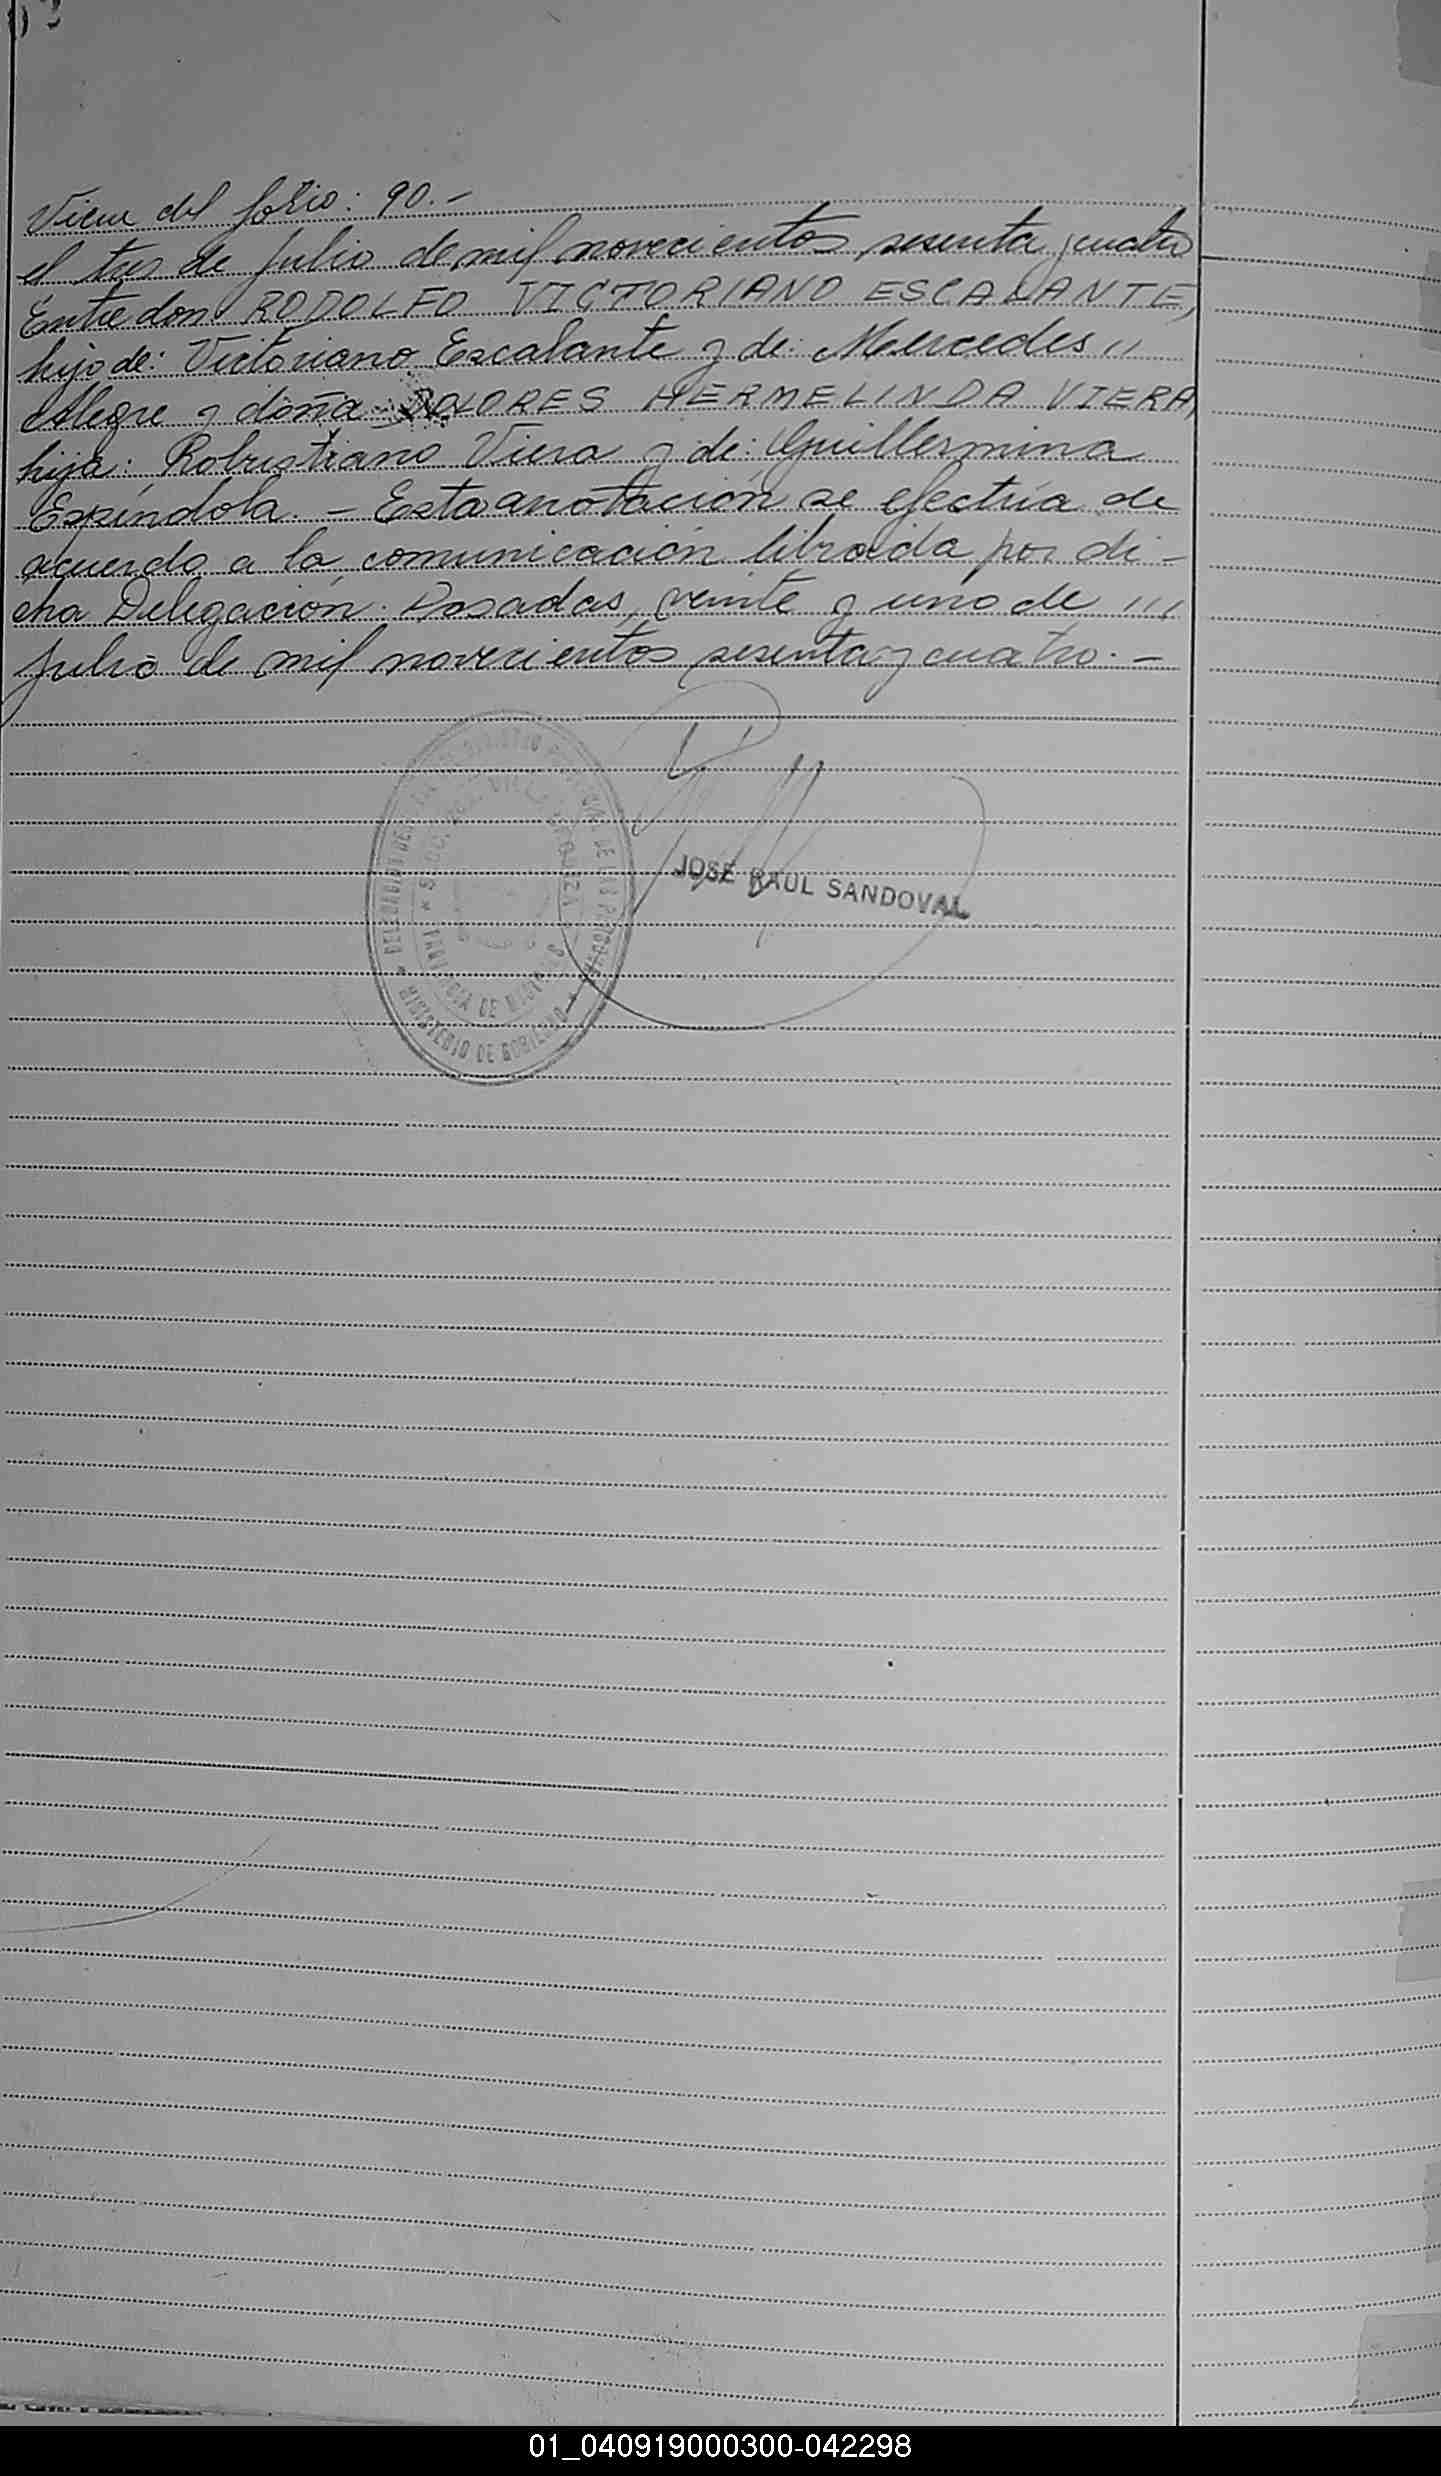 Viene del folio: 90.-
el tres de Julio de mil novecientos sesenta y cuatro
Entre don RODOLFO VICTORIANO ESCALANTE,
hijo de: Victoriano Escalante y de: Mercedes //
Alegre y doña DOLORES HERMELINDA VIERA,
hija: Robustiano Viera y de: Guillermina
Espíndola. - Esta anotación se efectúa de
acuerdo a la comunicación librada por di-
cha Delegación. Posadas, veinte y uno de ///
Julio de mil novecientos sesenta y cuatro. -
JOSE RAUL SANDOVAL
PROVINCIA DE MISIONES
MINISTERIO DE GOBIERNO
01_040919000300-042298